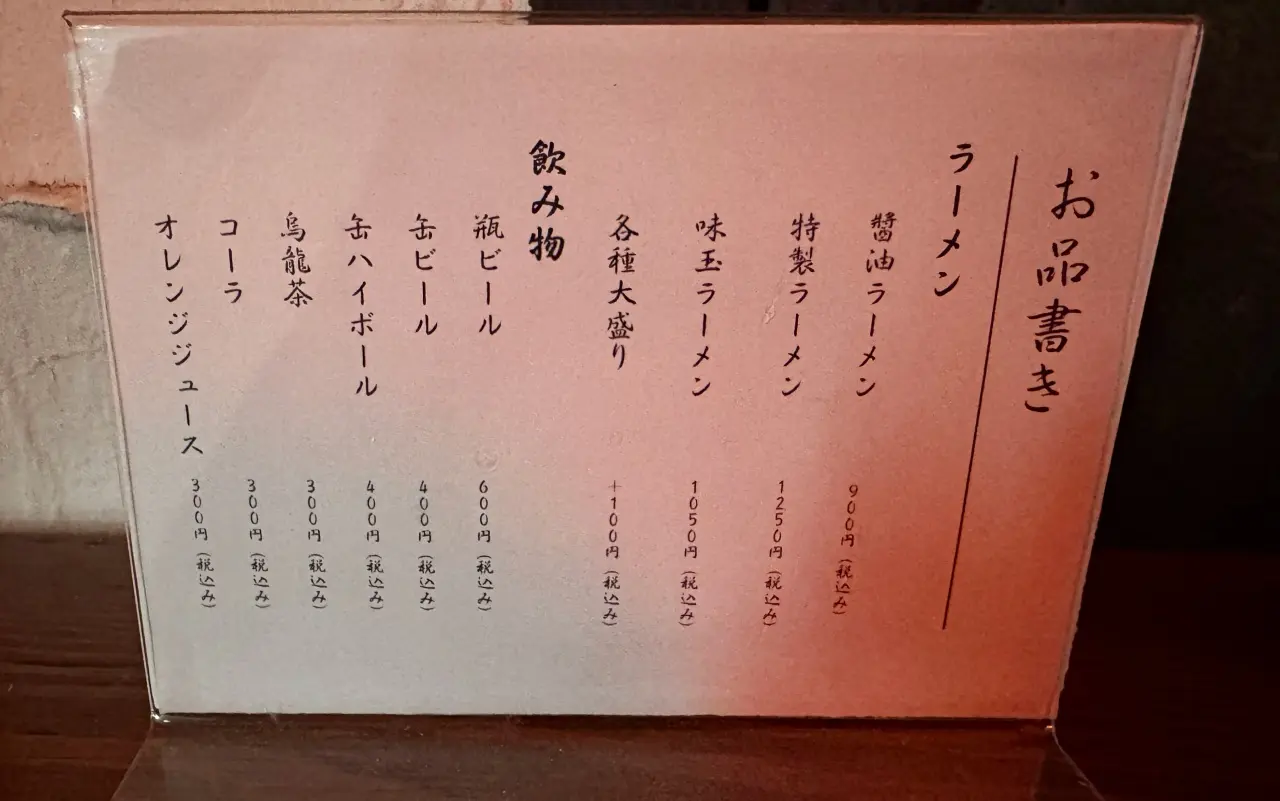 お品書き
ラーメン
醬油ラーメン 900円（税込み）
特製ラーメン 1250円（税込み）
味玉ラーメン 1050円（税込み）
各種大盛り +100円（税込み）
飲み物
瓶ビール 600円（税込み）
缶ビール 400円（税込み）
缶ハイボール 400円（税込み）
烏龍茶 300円（税込み）
コーラ 300円（税込み）
オレンジジュース 300円（税込み）